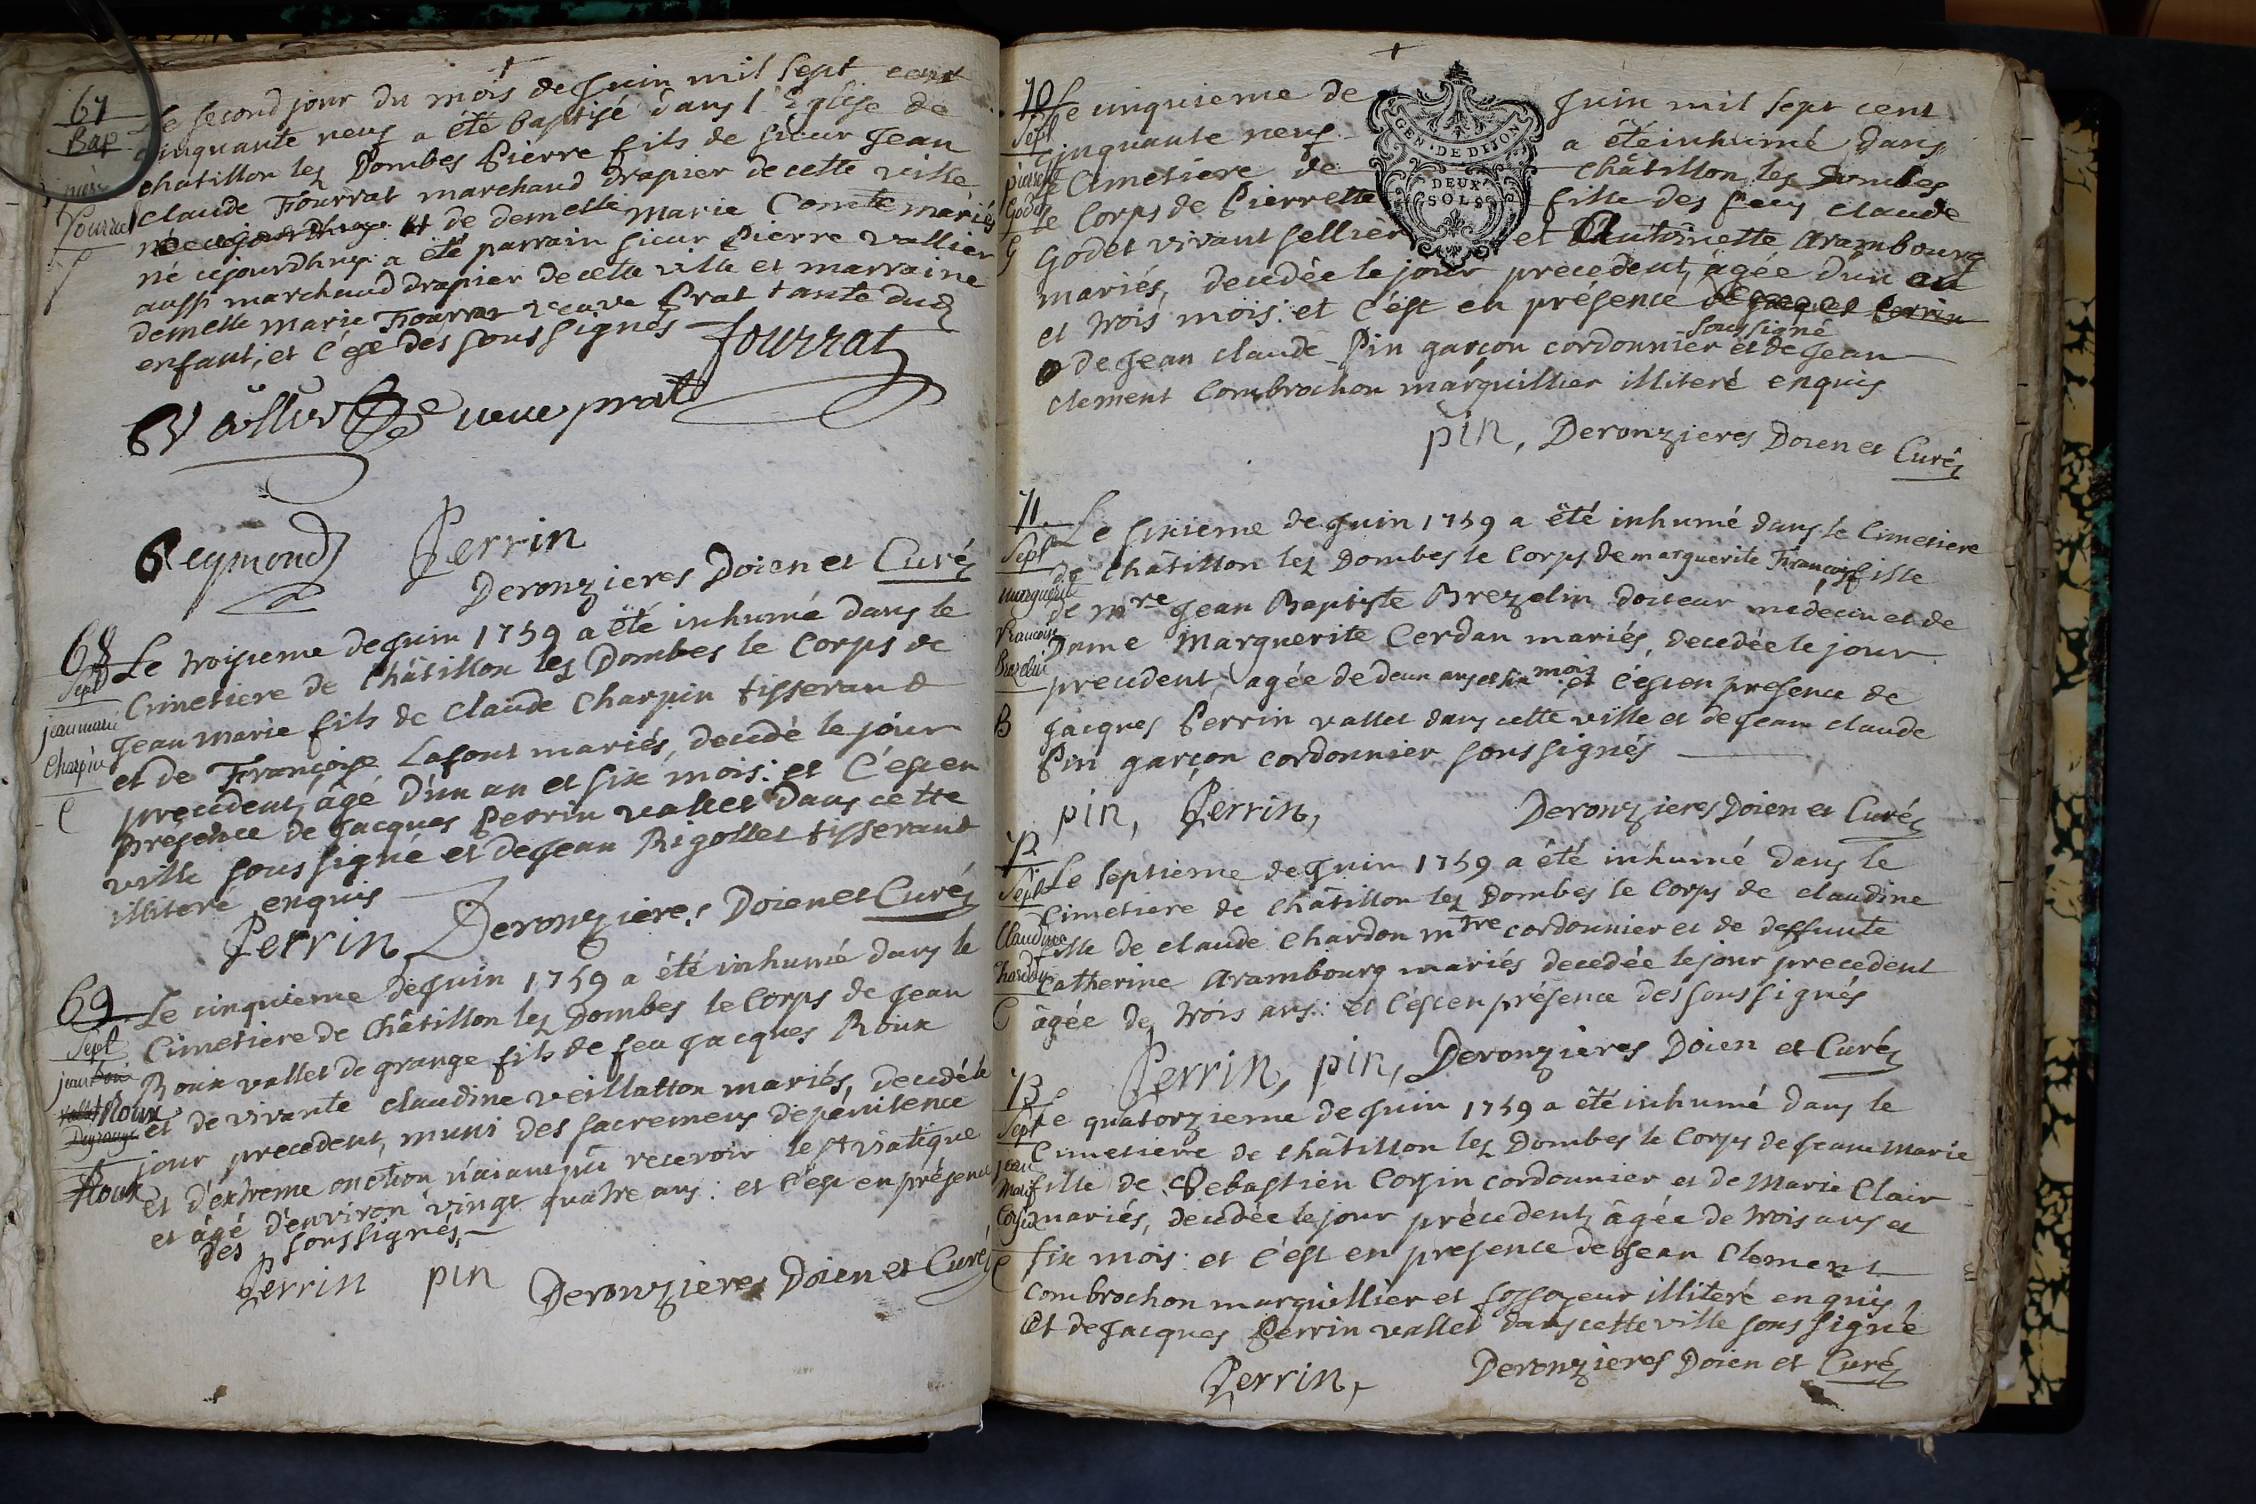 67
Bap
pierre
fourrat
f
Le second jour du mois de Juin mil sept cent
cinquante neuf a été baptisé dans l'Eglise de
châtillon lez Dombes Pierre fils de sieur Jean
claude Fourrat marchand drapier de cette ville
et de demelle Marie Comte mariés
né cejourdhuy: a été parrain sieur Pierre vallier
aussi marchand drapier de cette ville et marraine
demelle marie Fourrat veuve Prat tante dud
enfant; et c'est des soussignés
fourrat
veuve prat
Reymond
Perrin
Deronzieres Doien et Curé
68
Sepl
jean marie
Charpin
C
Le troisieme de Juin 1759 a été inhumé dans le
Cimetiere de Châtillon lez Dombes le Corps de
Jean Marie fils de claude Charpin tisserand
et de Françoise Lafont mariés, decedé le jour
precedent, âgé d'un an et six mois: et C'est en
présence de Jacques Perrin vallet dans cette
ville soussigné et de Jean Rigollet tisserand
illiteré enquis
Perrin Deronzieres Doien et Curé
69
Sepl
jean
Roux
Roux
Le cinquieme de Juin 1759 a été inhumé dans le
Cimetiere de Châtillon lez Dombes le Corps de Jean
Roux vallet de grange fils de feu Jacques Roux
et de vivante claudine veillatton mariés, decedé le
jour precedent, muni des sacremens de pénitence
et d'extreme onction n'aiant pû recevoir le St viatique
et âgé d'environ vingt quatre ans: et c'est en présence
des soussignés
Perrin pin Deronzieres Doien et Curé
70
Sepl
pierrette
Godet
G
GEN. DE DIJON
DEUX
SOLS
Le cinquieme de Juin mil sept cent
cinquante neuf a été inhumé dans
le Cimetiere de Châtillon lez Dombes
le Corps de Pierrette fille des feus claude
Godet vivant sellier et Antoinette Arambourg
mariés, decedée le jour precedent, âgée d'un an
et trois mois: et C'est en présence de Jacques Perrin
soussigné
de Jean claude Pin garçon cordonnier et de Jean
clement Combrochon marguillier illiteré enquis
pin, Deronzieres Doien et Curé
71.
Sepl
marguerite
francoise
Brezelin
B
Le sixieme de Juin 1759 a été inhumé dans le Cimetiere
de Châtillon lez Dombes le Corps de marguerite Françoise fille
de mre Jean Baptiste Brezelin docteur medecin et de
Dame Marguerite Cerdan mariés, decedée le jour
precedent, âgée de deux ans et six mois et c'est en presence de
Jacques Perrin vallet dans cette ville et de Jean claude
Pin garçon cordonnier soussignés
pin, Perrin, Deronzieres Doien et Curé
72
Sepl
Claudine
Chardon
C
Le septieme de Juin 1759 a été inhumé dans le
Cimetiere de Châtillon lez Dombes le Corps de claudine
fille de claude Chardon mtre cordonnier et de deffunte
Catherine Arambourg mariés decedée le jour precedent
âgée de trois ans: et C'est en présence des soussignés
Perrin, pin, Deronzieres Doien et Curé
73
Sepl
jean
marie
Corsin
C
Le quatorzieme de Juin 1759 a été inhumé dans le
Cimetiere de Châtillon lez Dombes le Corps de Jeanne Marie
fille de Sebastien Corsin cordonnier et de Marie Clair
mariés, decedée le jour précedent, âgée de trois ans et
six mois: et C'est en presence de Jean Clement
Combrochon marguillier et fossoyeur illiteré enquis,
et de Jacques Perrin vallet dans cette ville soussigné
Perrin, Deronzieres Doien et Curé